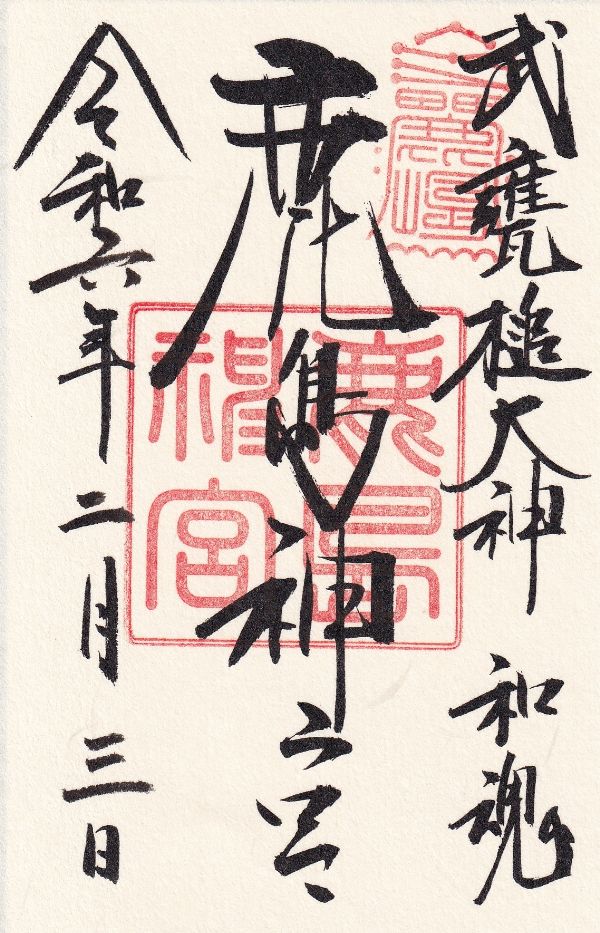 武甕槌大神 和魂
鹿島神宮
令和六年 二月 三日
鹿島
神宮